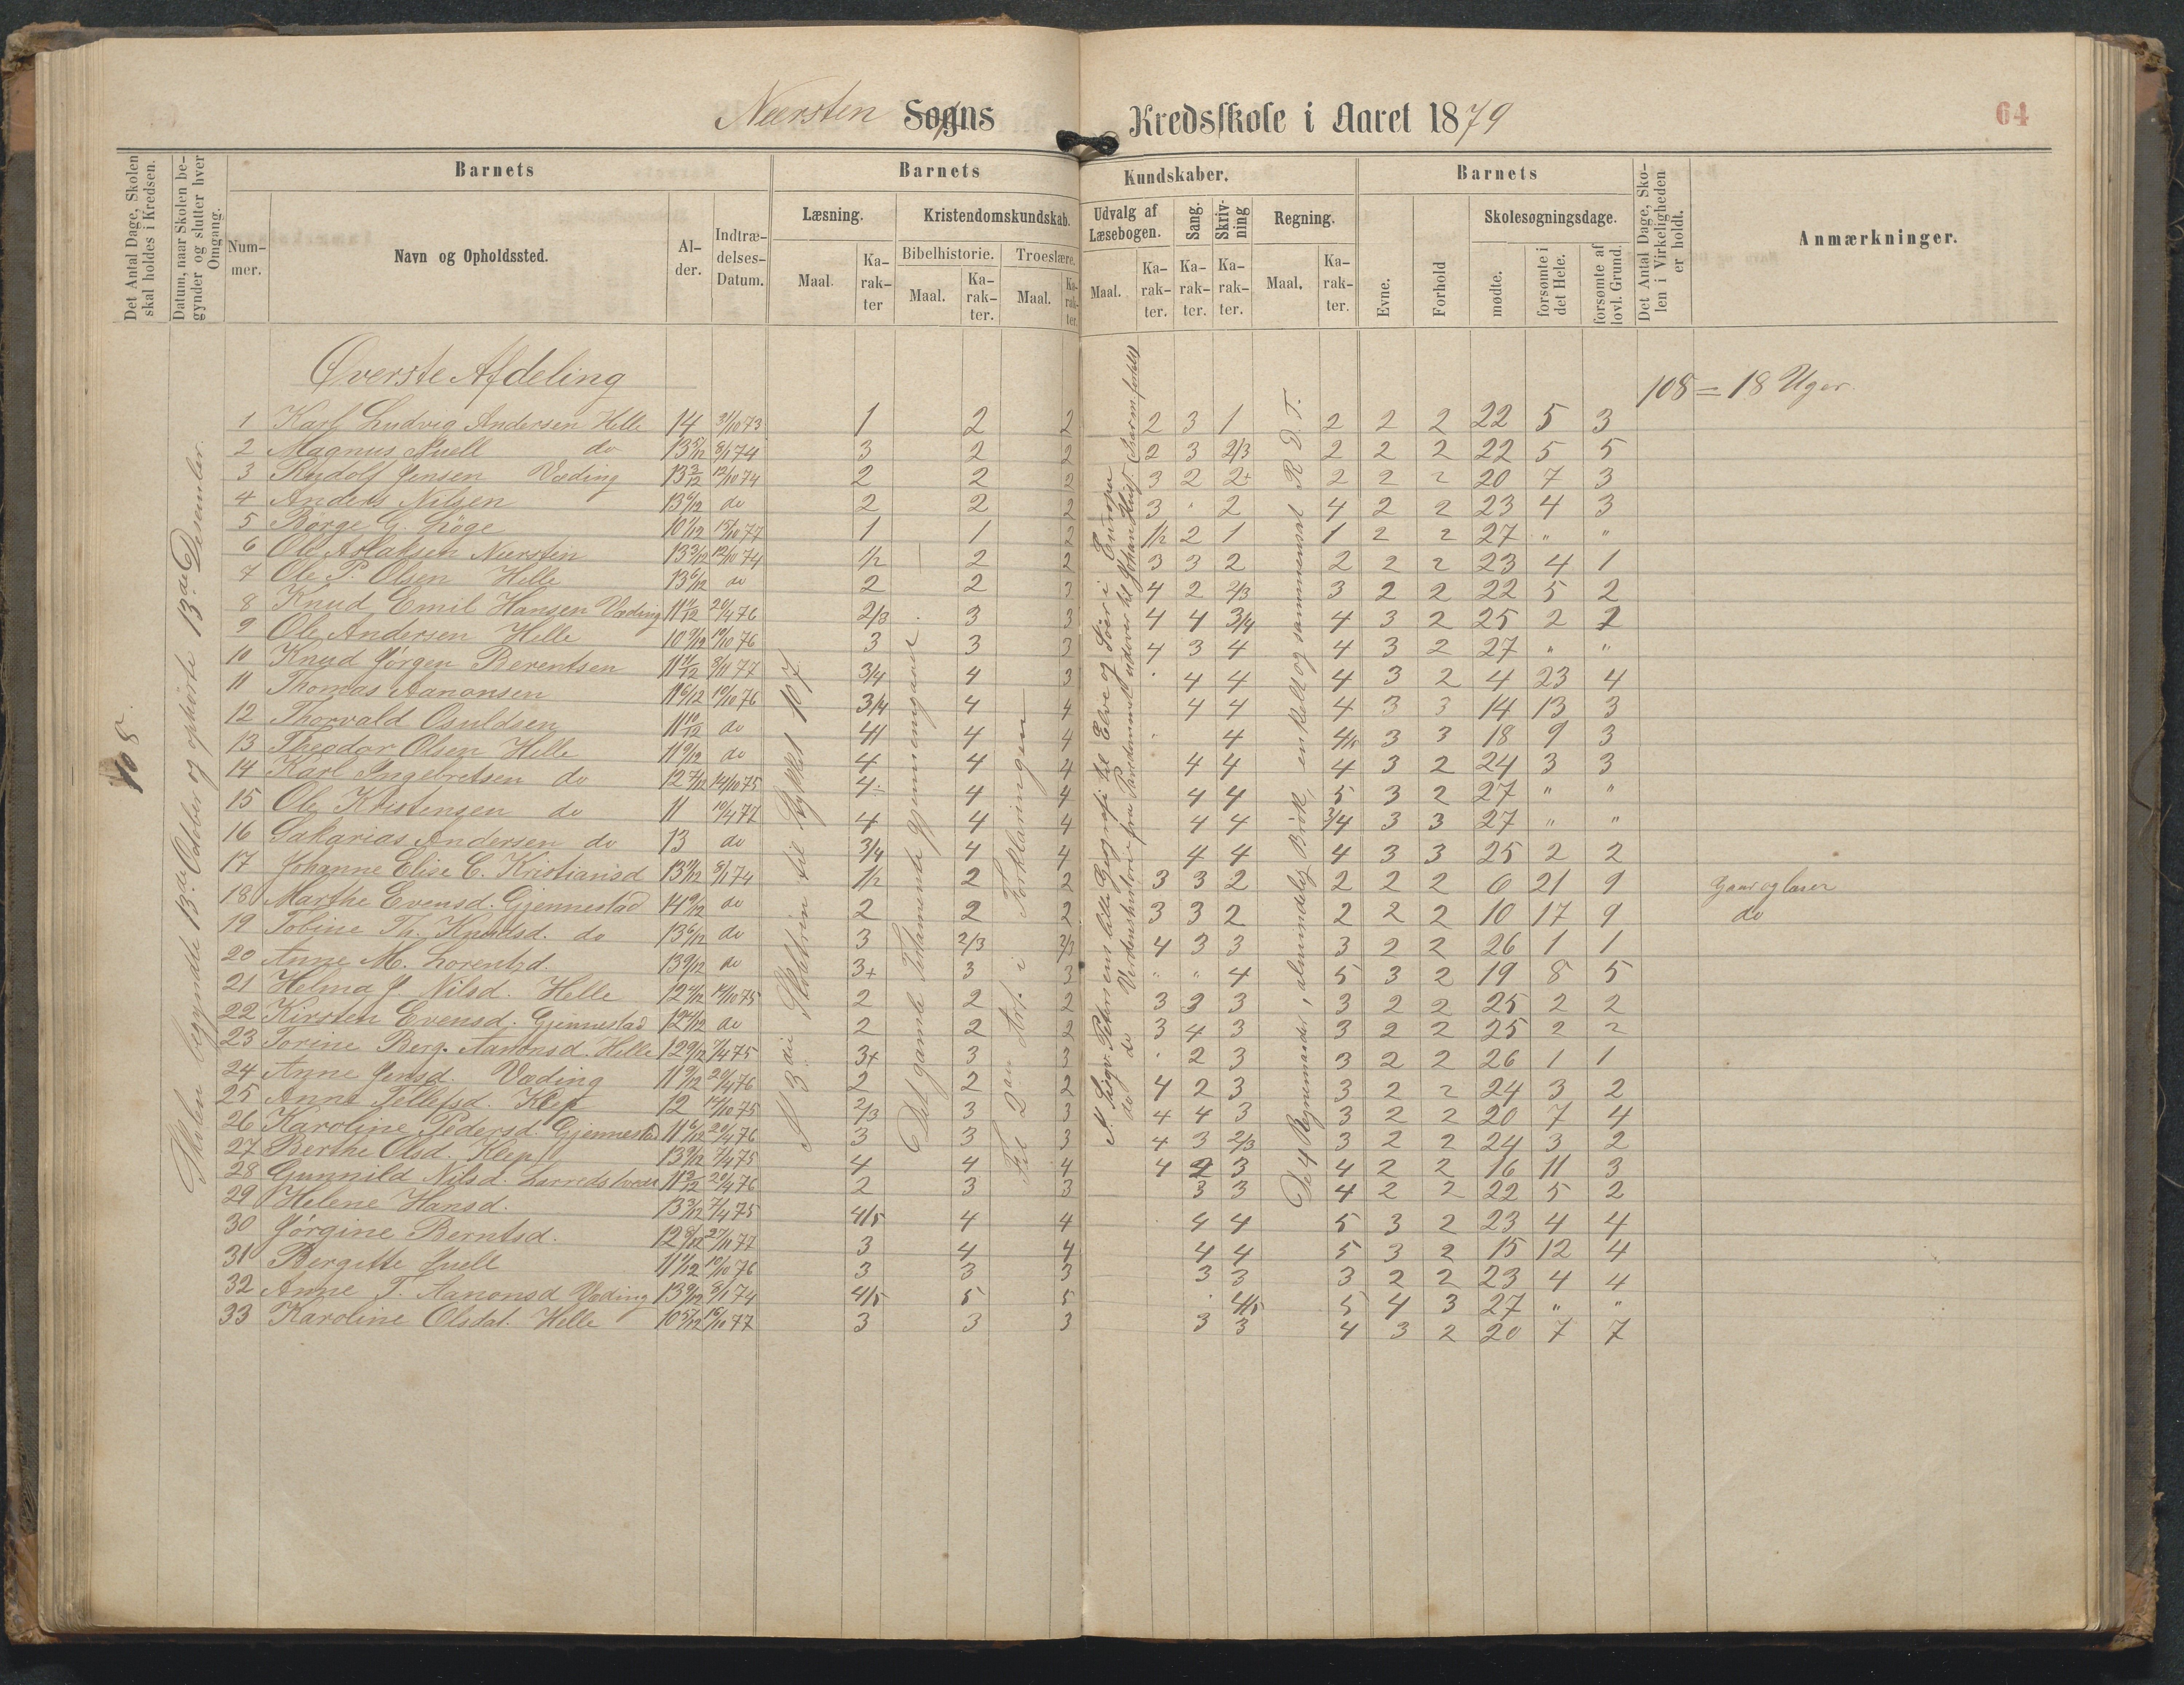 Næersten Sogns Kredsskole i Aaret 1879
64
Det Antal Dage, Skolen skal holdes i Kredsen.
Datum, naar Skolen begynder og slutter hver Omgang.
Barnets
Num-mer.
Navn og Opholdssted.
Al-der.
Indtræ-delses-Datum.
Barnets Kundskaber.
Læsning.
Maal.
Ka-rak-ter
Kristendomskundskab.
Bibelhistorie.
Maal.
Ka-rak-ter.
Troeslære.
Maal.
Ka-rak-ter.
Udvalg af Læsebogen.
Maal.
Ka-rak-ter.
Sang.
Ka-rak-ter.
Skriv-ning
Ka-rak-ter.
Regning.
Maal.
Ka-rak-ter.
Barnets
Evne.
Forhold
Skolesøgningsdage.
mødte.
forsømte i det Hele.
forsømte af lovl. Grund.
Det Antal Dage, Sko-len i Virkeligheden er holdt.
Anmærkninger.
108.
Skolen begyndte 13de October og ophørte 13de Desember.
Øverste Afdeling
108 = 18 Uger.
1 Karl Ludvig Andersen Helle 14 31/10 73 1 2 2 2 3 1 2 2 2 22 5 3
2 Magnus Juell do 13 5/12 8/1 74 3 2 2 2 3 2/3 2 2 2 22 5 5
3 Rudolf Jensen Væding 13 2/12 12/10 74 2 2 2 3 2 2+ 2 2 2 20 7 3
4 Anders Nilsen 13 6/12 do 2 2 2 3 " 2 4 2 2 23 4 3
5 Børge G. Løge 10 1/12 15/10 77 1 1 2 1/2 2 1 1 2 2 27 " "
6 Ole Aslaksen Næersten 13 3/12 12/10 74 1/2 2 2 3 3 2 2 2 2 23 4 1
7 Ole P. Olsen Helle 13 6/12 do 2 2 3 4 2 2/3 3 2 2 22 5 2
8 Knud Emil Hansen Væding 11 11/12 20/4 76 2/3 3 3 4 4 3/4 4 3 2 25 2 2
9 Ole Andersen Helle 10 9/12 19/10 76 3 3 3 4 3 4 4 3 2 27 " "
10 Knud Jørgen Berentsen 11 11/12 8/11 77 3/4 4 3 " 4 4 4 3 2 4 23 4
11 Thomas Aanonsen 11 6/12 19/10 76 3/4 4 4 4 4 4 3 3 14 13 3
12 Thorvald Osuldsen 11 10/12 do 4 4 4 " 4 4/5 3 3 18 9 3
13 Theodor Olsen Helle 11 9/12 do 4 4 4 4 4 4 3 2 24 3 3
14 Karl Ingebretsen do 12 7/12 14/10 75 4 4 4 4 4 5 3 2 27 " "
15 Ole Kristensen do 11 10/4 77 4 4 4 4 4 3/4 3 3 27 " "
16 Sakarias Andersen do 13 do 3/4 4 4 4 4 4 3 3 25 2 2
17 Johanne Elise C. Kristiansd 13 11/12 8/1 74 1/2 2 2 3 3 2 2 2 2 6 21 9 Gaar og læser
18 Marthe Evensd. Gjennestad 14 9/12 do 2 2 2 3 3 2 2 2 2 10 17 9 do
19 Tobine Th. Knudsd. do 13 6/12 do 3 2/3 2/3 4 3 3 3 2 2 26 1 1
20 Anne M. Lorentzd. 13 9/12 do 3+ 3 3 " " 4 5 3 2 19 8 5
21 Helma J. Nilsd. Helle 12 11/12 14/10 75 2 2 2 3 3 3 3 2 2 25 2 2
22 Kirsten Evensd. Gjennestad 12 11/12 do 2 2 2 3 4 3 3 2 2 25 2 2
23 Torine Berg. Aanonsd. Helle 12 9/12 7/4 75 3+ 3 3 " 2 3 3 2 2 26 1 1
24 Anne Jensd. Væding 11 9/12 20/4 76 2 2 2 4 2 3 3 2 2 24 3 2
25 Anne Tellefsd. Klep 12 14/10 75 2/3 3 3 4 4 3 3 2 2 20 7 4
26 Karoline Pedersd. Gjennestad 11 6/12 20/4 76 3 3 3 4 3 2/3 3 2 2 24 3 2
27 Berthe Olsd. Klep 13 9/12 7/4 75 4 4 4 4 2 3 4 2 2 16 11 3
28 Gunnild Nilsd. 11 3/12 20/4 76 2 3 3 3 3 4 2 2 22 5 2
29 Helene Hansd. 13 3/12 7/4 75 4/5 4 4 4 4 5 3 2 23 4 4
30 Jørgine Berntsd. 12 8/12 27/11 77 3 4 4 4 4 5 3 2 15 12 4
31 Bergitte Juell 11 1/12 19/10 76 3 3 3 3 3 3 2 2 23 4 4
32 Anne T. Aanonsd Væding 13 9/12 8/1 74 4/5 5 5 " 4/5 5 4 3 27 " "
33 Karoline Olsdat. Helle 10 5/12 16/10 77 3 3 3 3 3 4 3 2 20 7 7
N 3die Skoletrin til Stykket 107.
Det gamle Testamente gjennemgaaet
Til 2den Art. i Forklaringen
N. Siegv. Petersens lille Geografi til Elve og Søer i Europa
do do Verdenshistorie fra Paredemmet udover til Johan Huss.
De 4 Regnemaader, almindelig Brøk, enkelt og sammensat R. D. T.